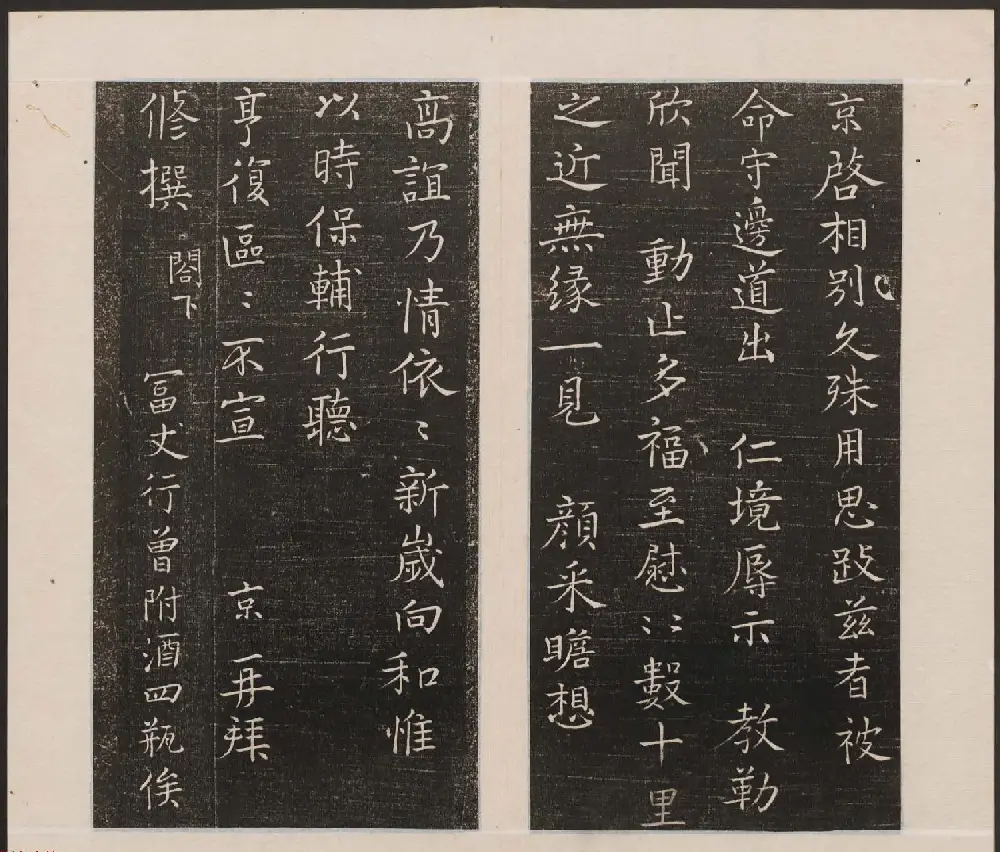 京啓相別久殊用思跂茲者被
命守邊道出 仁境辱示 教勒
欣聞 動止多福至慰〻數十里
之近無緣一見 顏采瞻想
高誼乃情依〻新歲向和惟
以時保輔行聽
亨復區〻不宣 京再拜
修撰 閤下
冨丈行曾附酒四瓶俟